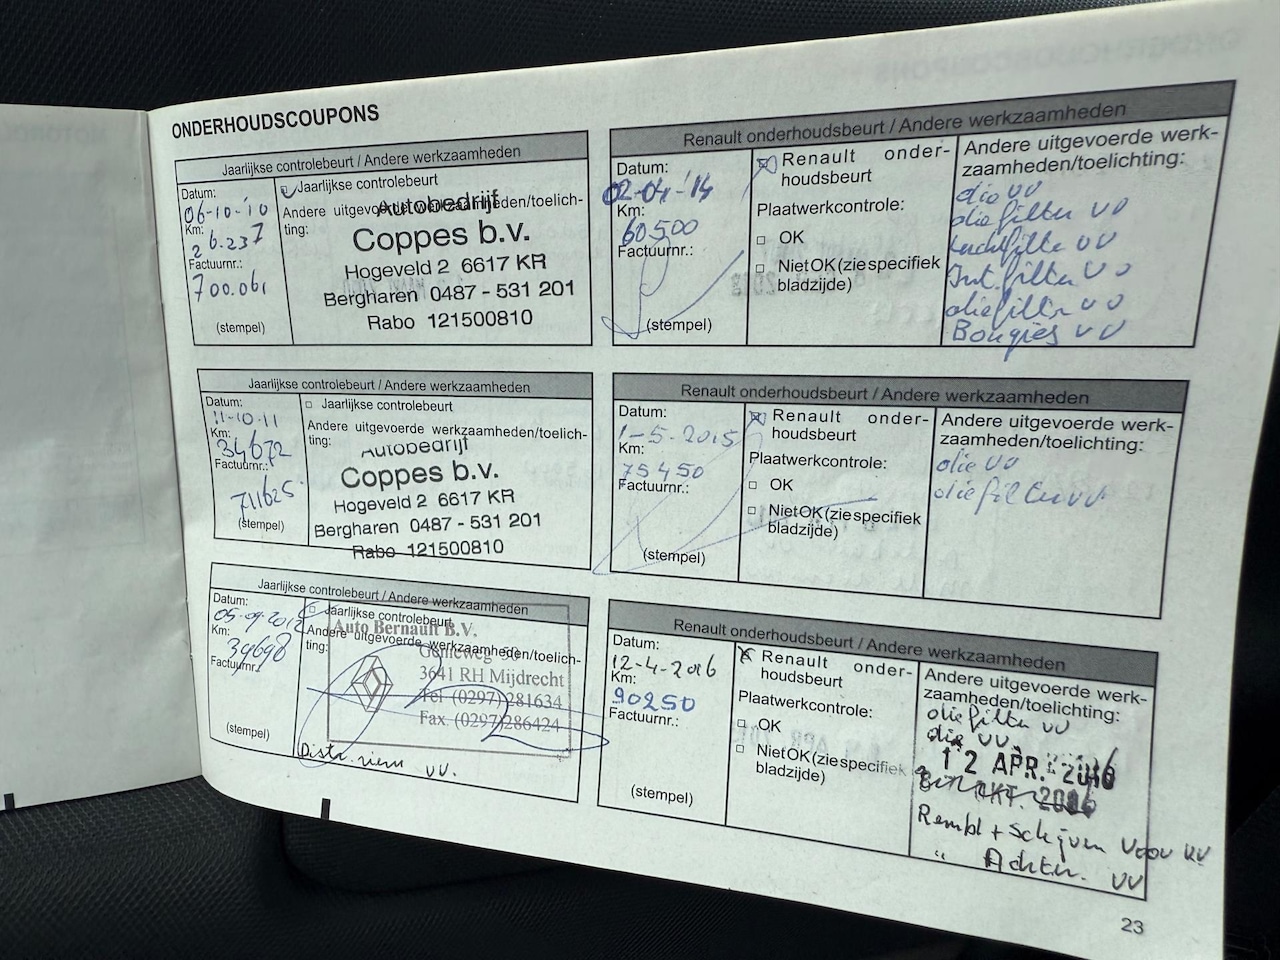 ONDERHOUDSCOUPONS
Jaarlijkse controlebeurt / Andere werkzaamheden
Datum:
06-10-'10
Km:
26.237
Factuurnr.:
700.061
(stempel)
Jaarlijkse controlebeurt
Andere uitgevoerde werkzaamheden/toelich-
ting:
Autobedrijf
Coppes b.v.
Hogeveld 2 6617 KR
Bergharen 0487 - 531 201
Rabo 121500810
Jaarlijkse controlebeurt / Andere werkzaamheden
Datum:
11-10-11
Km:
34672
Factuurnr.:
711625
(stempel)
Jaarlijkse controlebeurt
Andere uitgevoerde werkzaamheden/toelich-
ting:
Autobedrijf
Coppes b.v.
Hogeveld 2 6617 KR
Bergharen 0487 - 531 201
Rabo 121500810
Jaarlijkse controlebeurt / Andere werkzaamheden
Datum:
05-09-2012
Km:
39698
Factuurnr.
(stempel)
Jaarlijkse controlebeurt
Andere uitgevoerde werkzaamheden/toelich-
ting:
Auto Bernault B.V.
Genieweg 50
3641 RH Mijdrecht
Tel (0297)281634
Fax (0297)286424
Distr. riem VV.
Renault onderhoudsbeurt / Andere werkzaamheden
Datum:
02-04-'14
Km:
60500
Factuurnr.:
(stempel)
Renault onder-
houdsbeurt
Plaatwerkcontrole:
OK
Niet OK (zie specifiek
bladzijde)
Andere uitgevoerde werk-
zaamheden/toelichting:
olie VV
oliefilter VV
luchtfilter VV
Int. filter VV
oliefilter VV
Bougies VV
Renault onderhoudsbeurt / Andere werkzaamheden
Datum:
1-5-2015
Km:
75450
Factuurnr.:
(stempel)
Renault onder-
houdsbeurt
Plaatwerkcontrole:
OK
Niet OK (zie specifiek
bladzijde)
Andere uitgevoerde werk-
zaamheden/toelichting:
olie VV
oliefilter VV
Renault onderhoudsbeurt / Andere werkzaamheden
Datum:
12-4-2016
Km:
90250
Factuurnr.:
(stempel)
Renault onder-
houdsbeurt
Plaatwerkcontrole:
OK
Niet OK (zie specifiek
bladzijde)
Andere uitgevoerde werk-
zaamheden/toelichting:
oliefilter VV
olie VV.
12 APR. 2016
OKT. 2016
Rembl + schijven voor VV
" Achter. VV
23